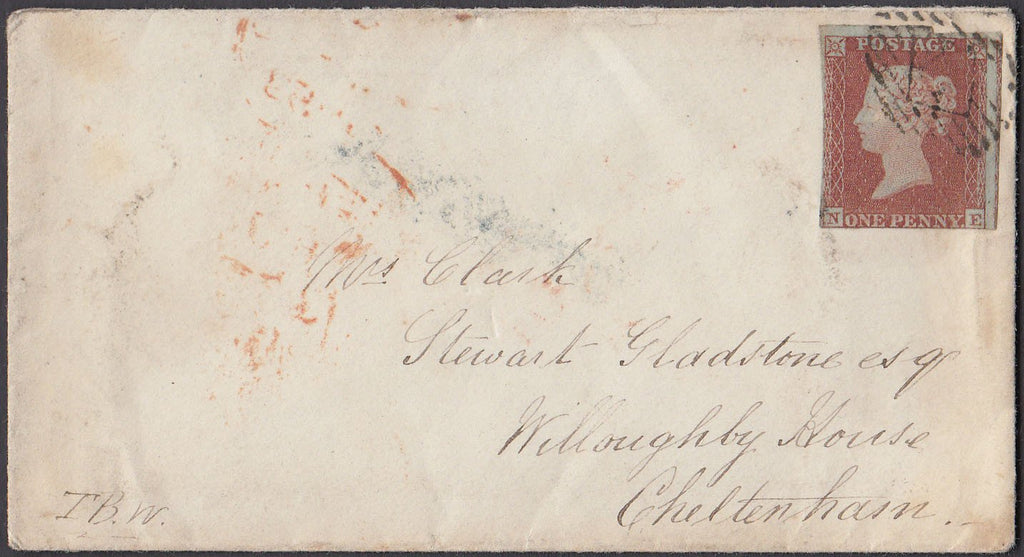 POSTAGE
N ONE PENNY E
Mrs Clark
Stewart Gladstone esq
Willoughby House
Cheltenham.